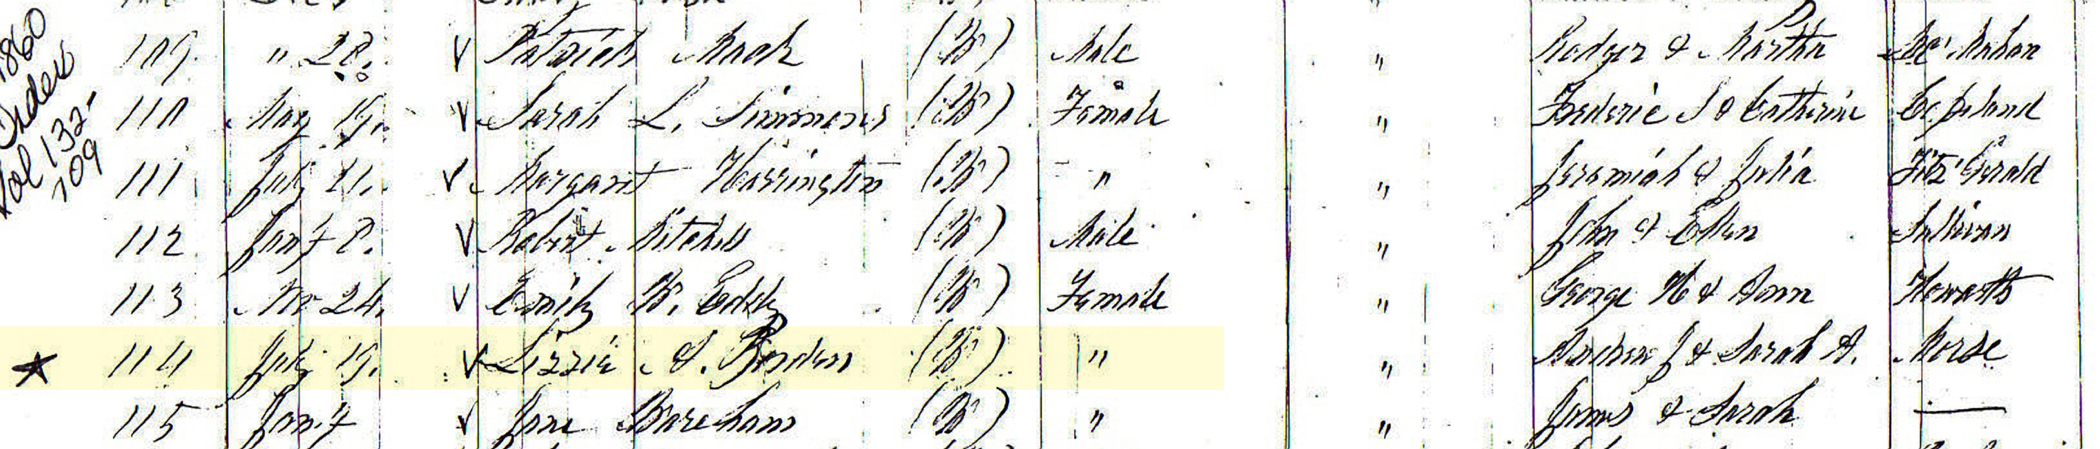 1860
Index
Vol 132-
109
109 " 28. V Patrick Mack (W) Male " Rodger & Martha McMahan
110 May 19. V Sarah L. Simmons (W) Female " Frederic S & Catherine Copeland
111 July 21. V Margaret Harrington (W) " " Jeremiah & Julia Fitz Gerald
112 Jany 8. V Robert Mitchell (W) Male " John & Ellen Sullivan
113 Nov 24. V Emily B. Eddy (W) Female " George H & Ann Howarth
114 July 19. V Lizzie A. Borden (W) " " Andrew J & Sarah A. Morse
115 Jany V Jane Bareham (W) " " James & Sarah —